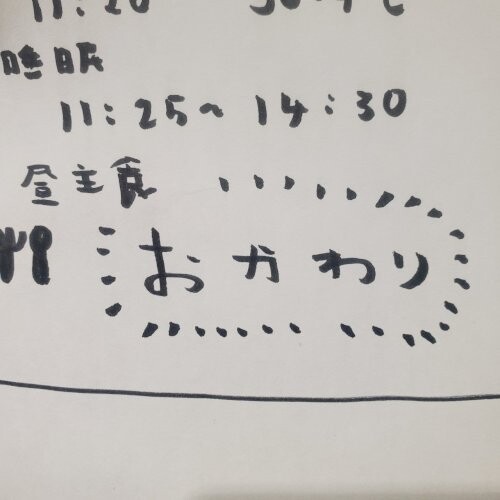 睡眠
11:25~14:30
昼主食
おかわり